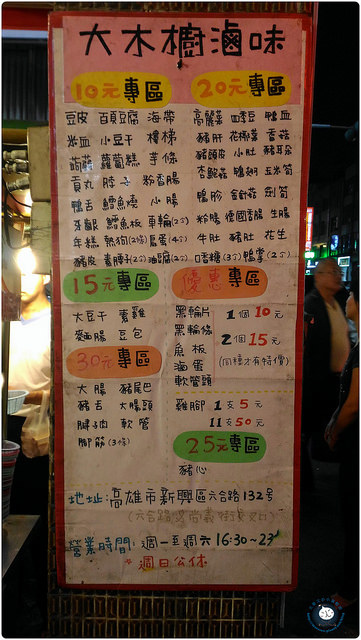 大木櫥滷味
10元專區
豆皮 百頁豆腐 海帶
米血 小豆干 樓梯
蒟蒻 蘿蔔糕 芋條
貢丸 脖子 粉香腸
鴨舌 鱈魚燒 小腸
牙齦 鱈魚板 車輪(2個)
年糕 熱狗(2條) 鳥蛋(4個)
豬皮 油腐(2個)
20元專區
高麗菜 四季豆 鴨血
豬肝 花椰菜 香菇
豬頭皮 小肚 豬耳朵
杏鮑菇 鴨翅 玉米筍
鴨胗 金針菇 劍筍
粉腸 德國香腸 生腸
牛肚 豬肚 花生
Q香樓(3個) 鴨掌(2個)
15元專區
大豆干 素雞
麵腸 豆包
30元專區
大腸 豬尾巴
豬舌 大腸頭
腱子肉 軟管
腳筋(3條)
優惠專區
黑輪片
黑輪條
魚板
滷蛋
軟管頭
1個10元
2個15元
(同種才有特價)
雞腳 1支5元
11支50元
25元專區
豬心
地址:高雄市新興區六合路132號
營業時間:週一至週六 16:30~23
*週日公休